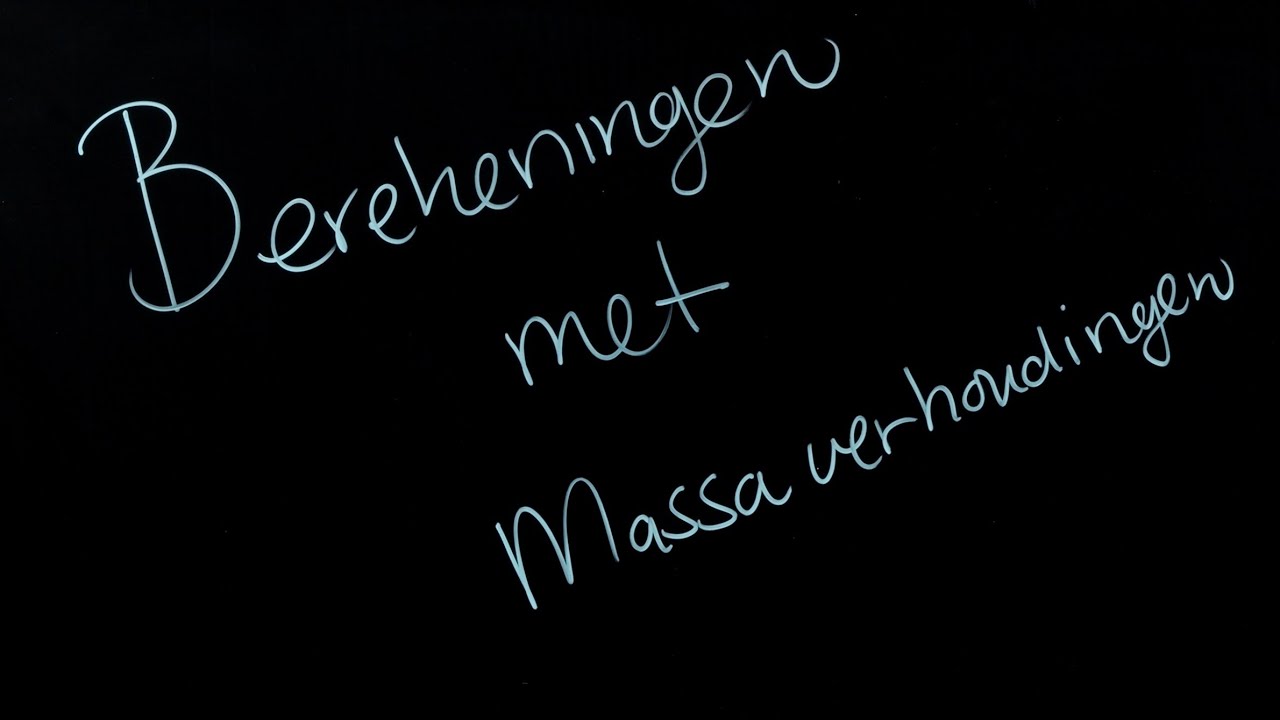 Berekeningen
met
Massa verhoudingen